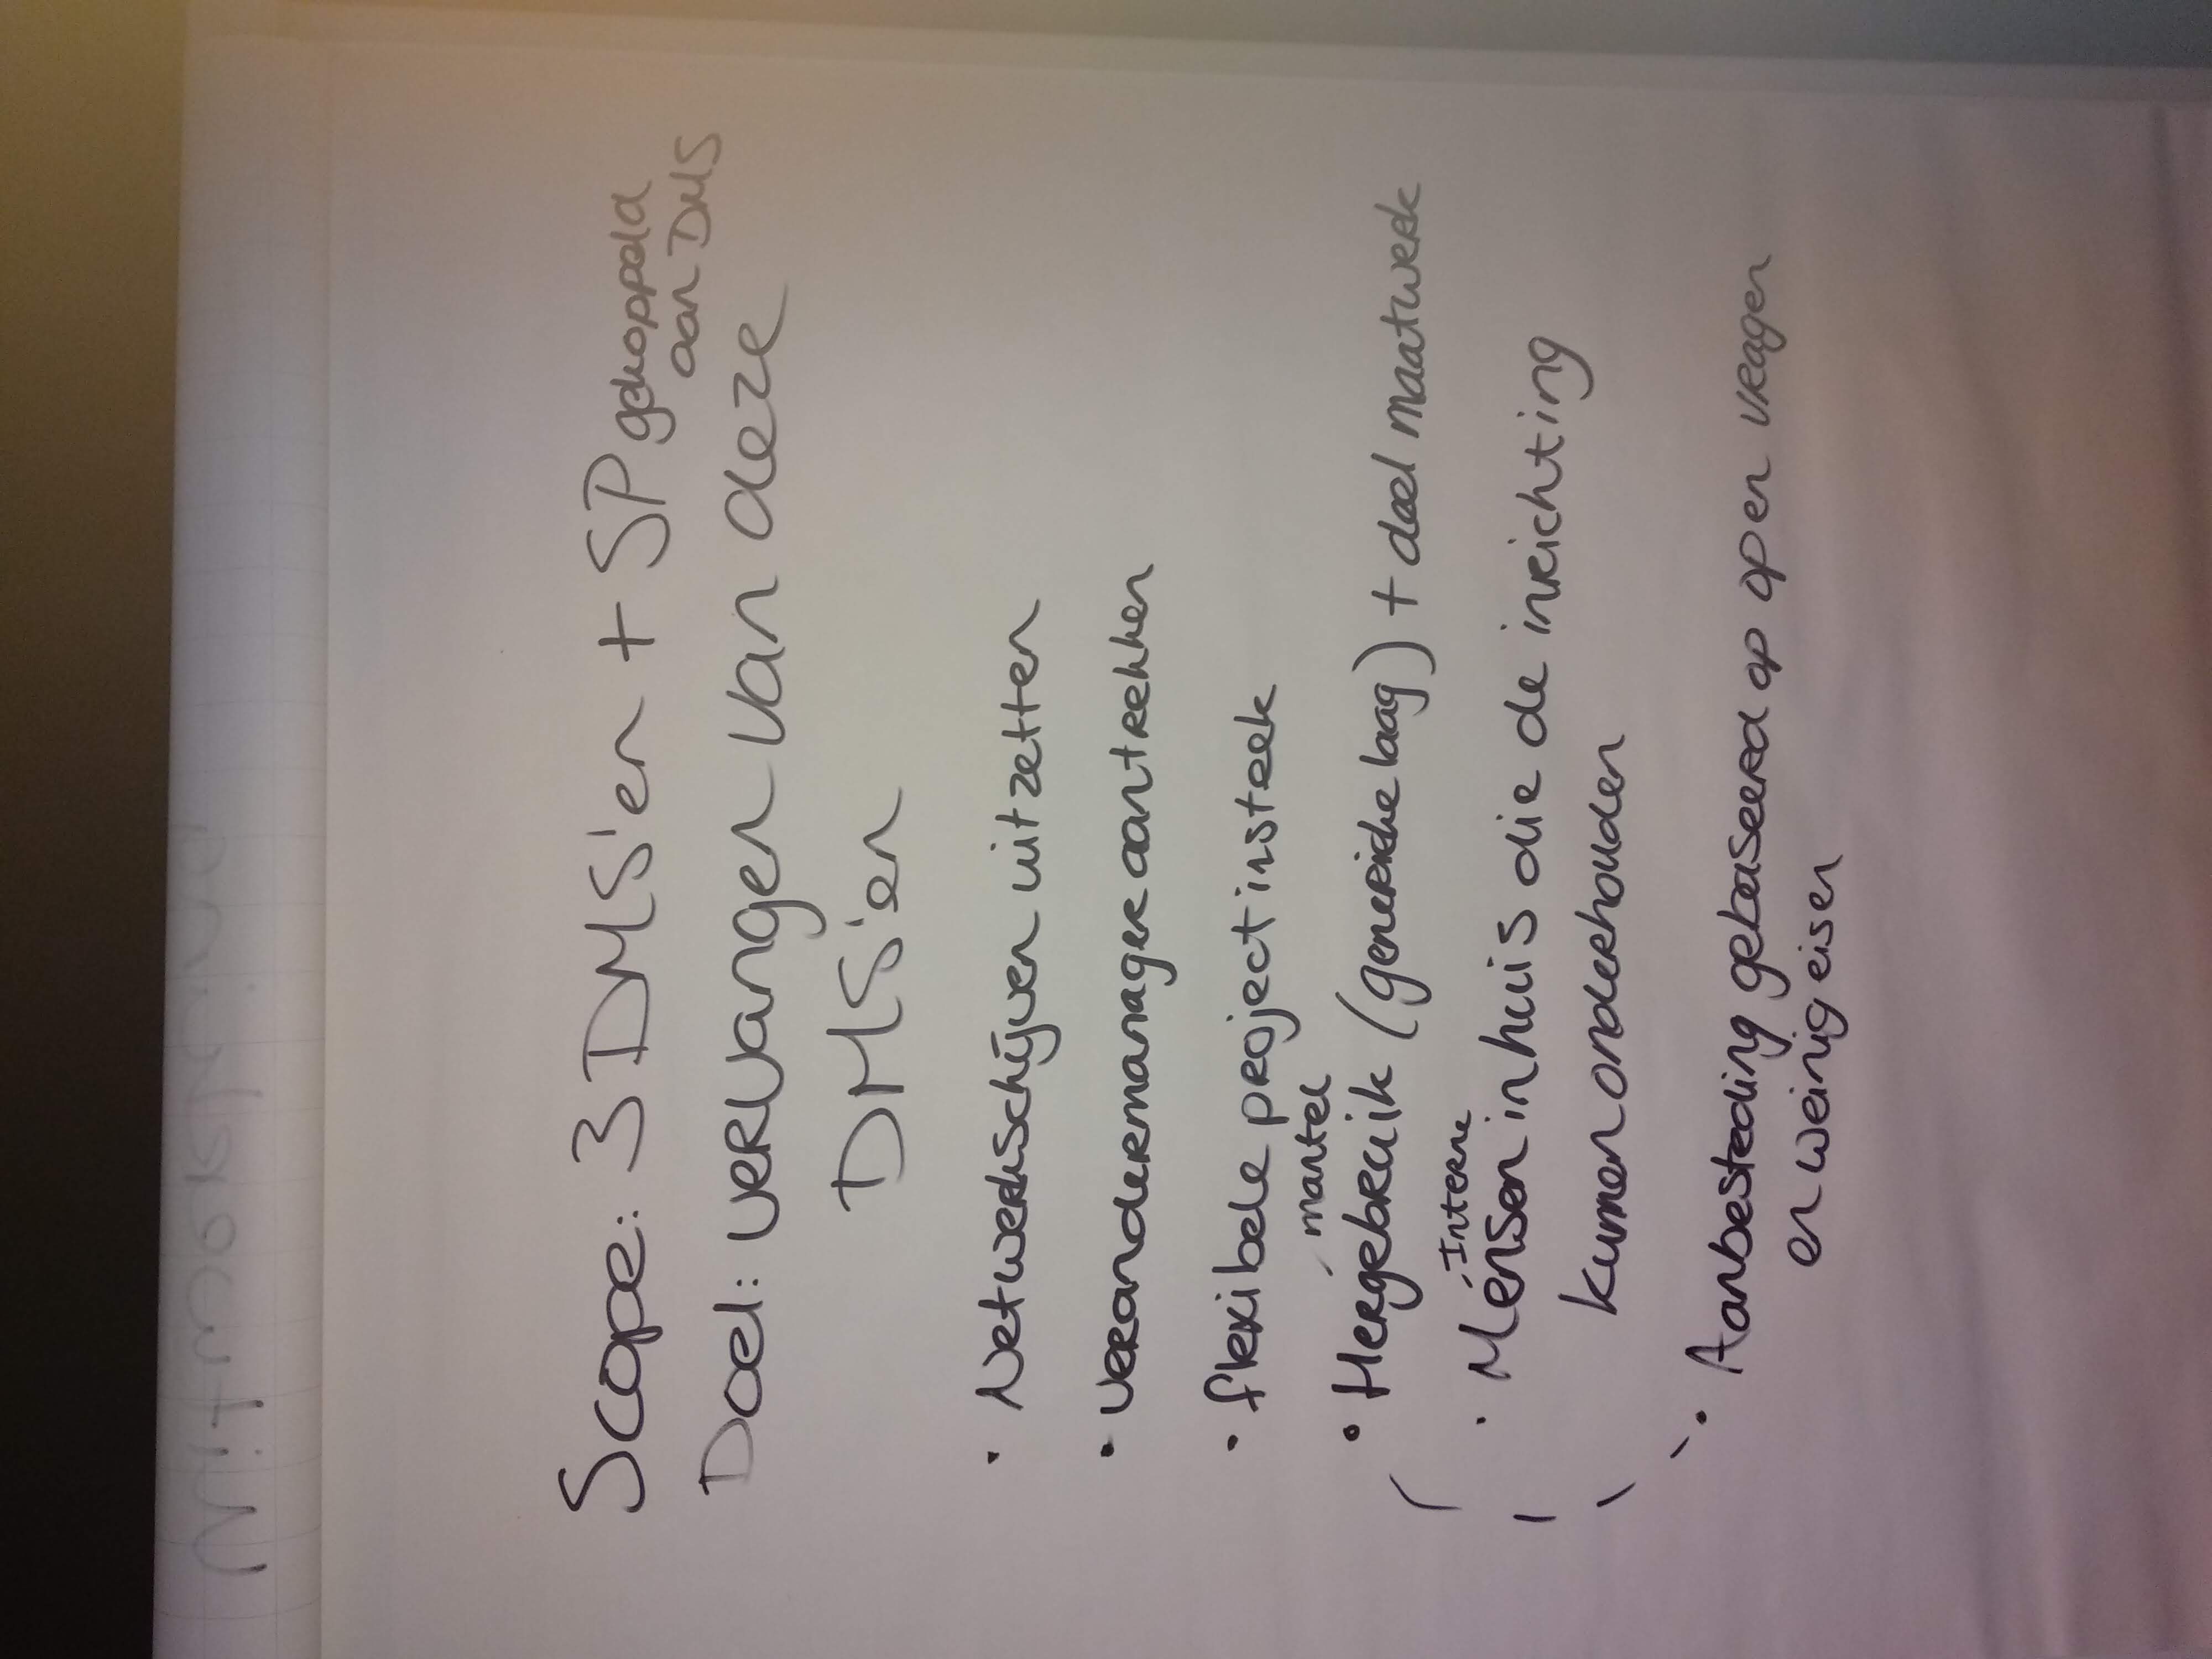 Scope: 3 DMS'en + SP gekoppeld
aan DMS
Doel: vervangen van deze
DMS'en
• Netwerkschijven uitzetten
• Verandermanager aantrekken
• flexibele project insteek
mantel
• Hergebruik (generieke laag) + deel maatwerk
Interne
• Mensen in huis die de inrichting
kunnen onderhouden
• Aanbesteding gebaseerd op open vragen
en weinig eisen